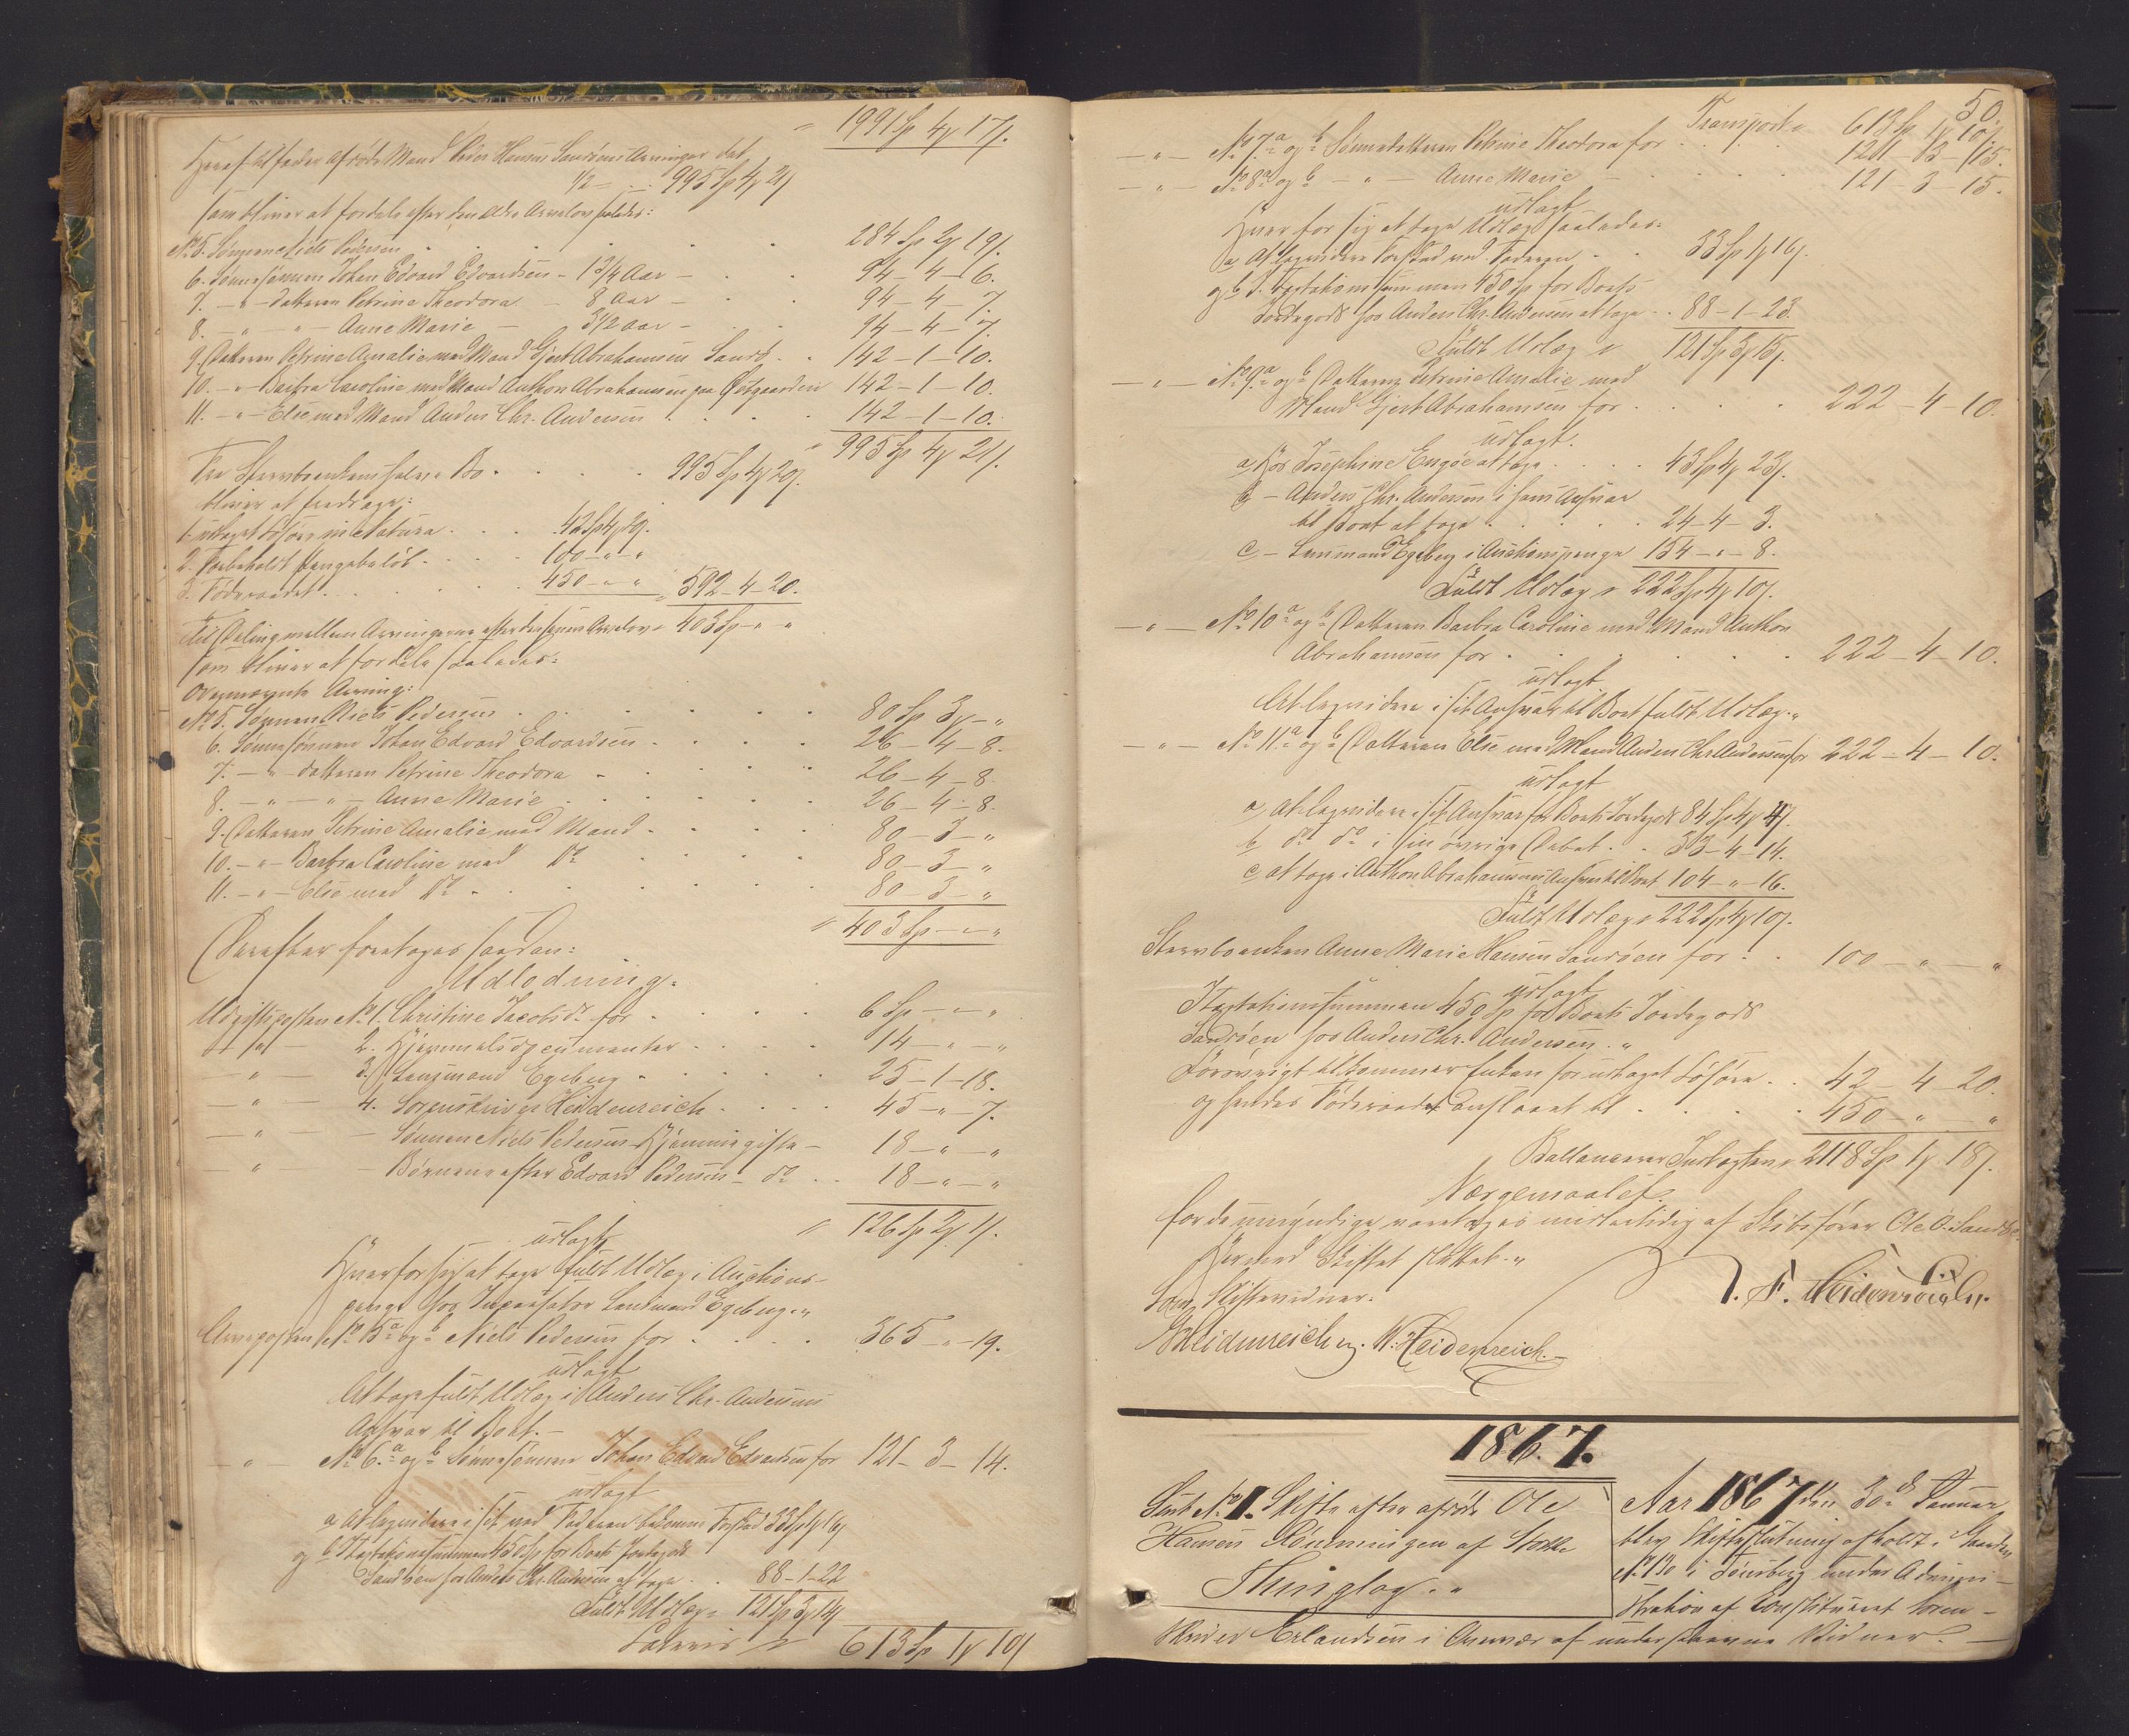 = 1991 Sp 4 # 17 ß.
Heraf tilfalder afdøde Mand Peder Hansen Sandøens Arvinger det
1/2 = 995 Sp 4 # 21 ß
som bliver at fordele efter den ældre Arvelov saaledes:
No 5. Sønnen Niels Pedersen . . . . . 284 Sp 2 # 19 ß.
6. Sønnesønnen Johan Edvard Edvardsen - 13/4 Aar - . . 94 - 4 - 6.
7. - " - datteren Petrine Theodora - 8 Aar - . . 94 - 4 - 7.
8. - " - " - Anne Marie - 3 1/2 Aar - . . 94 - 4 - 7.
9. Datteren Petrine Amalie med Mand Gjert Abrahamsen Sandø . . 142 - 1 - 10.
10. - " - Barbra Caroline med Mand Anthon Abrahamsen paa Østgaarden 142 - 1 - 10.
11. - " - Else med Mand Anders Chr. Andersen . . . 142 - 1 - 10.
= 995 Sp 4 # 21 ß.
Fra Stervboenkens halve Bo . . . . 995 Sp 4 # 20 ß.
bliver at fradrage:
1. udtaget Løsøre in Natura . . . 42 Sp 4 # 20.
2. Forbeholdt Pengebeløb . . . 100 - " - "
3. Føderaadet . . . . . 450 - " - " = 592 - 4 - 20.
Til Deling mellem Arvingerne efter den senere Arvelov = 403 Sp - " - "
som bliver at fordele saaledes:
Ovennævnte Arving:
No 5. Sønnen Niels Pedersen . . . . . 80 Sp 3 # - "
6. Sønnesønnen Johan Edvard Edvardsen . . . . 26 - 4 - 8.
7. - " - datteren Petrine Theodora . . . . . 26 - 4 - 8.
8. - " - " - Anne Marie . . . . . . 26 - 4 - 8.
9. Datteren Petrine Amalie med Mand . . . . 80 - 3 - "
10. - " - Barbra Caroline med Do . . . . 80 - 3 - "
11. - " - Else med Do . . . . . . . 80 - 3 - "
= 403 Sp - " - "
Derefter foretages saadan:
Udlodning.
Udgiftsposten No 1. Christine Jacobsdr for . . . . 6 Sp - " - "
- " - 2. Hjemmelsdocumenter . . . . 14 - " - "
- " - 3. Lensmand Egeberg . . . . . 25 - 1 - 18.
- " - 4. Sorenskriver Heidenreich . . . . 45 - " - 7.
- " - - Sønnen Niels Pedersen Hjemmegifte - 18 - " - "
- " - - Børnene efter Edvard Pedersen - do . . 18 - " - "
= 126 Sp 2 # 1 ß.
udlagt
Hver for sig at tage fuldt Udlæg i Auctions-
penge hos Incassator Lensmand Egeberg. "
Arveposten No 5 a og b Niels Pedersen for . . . . 365 - " - 19.
udlagt
At tage fuldt Udlæg i Anders Chr. Andersens
Ansvar til Boet. -
- " - No 6. a og b Sønnesønnen Johan Edvard Edvardsen for 121 - 3 - 14.
udlagt
a At legvidere i sit ved Faderen bekomne Forskud 33 Sp 1 # 16 ß
og b I Taxtationssummen 450 Sp for Boets Jordegods
Sandøen hos Anders Chr. Andersen at tage . . 88 - 1 - 22
Fuldt Udlæg = 121 Sp 3 # 14 ß
Lateris = 613 Sp 1 # 10 ß
50.
Transport = 613 Sp 1 # 10 ß.
- " - No 7. a og b Sønnedatteren Petrine Theodora for . . . 121 - 3 - 15.
- " - No 8 a og b - " - Anne Marie - . . . . 121 - 3 - 15.
udlagt
Hver for sig at tage Udlæg saaledes:
a At legvidere Forskud ved Faderen . . 33 Sp 1 # 16 ß.
og b I Taxtationssummen 450 Sp for Boets
Jordegods hos Anders Chr. Andersen at tage . . 88 - 1 - 23.
Fuldt Udlæg = 121 Sp 3 # 15 ß.
- " - No 9. a og b Datteren Petrine Amalie med
Mand Gjert Abrahamsen for . . . . . 222 - 4 - 10.
udlagt.
a, hos Josephine Engøe at tage . . . . 43 Sp 4 # 23 ß.
b - Anders Chr. Andersen i hans Ansvar
til Boet at tage . . . . . 24 - 4 - 3.
c - Lensmand Egeberg i Auctionspenge 154 - " - 8.
Fuldt Udlæg = 222 Sp 4 # 10 ß.
- " - No 10 a og b Datteren Barbra Caroline med Mand Anthon
Abrahamsen for . . . . . . 222 - 4 - 10.
udlagt
At legvidere i sit Ansvar til Boet fuldt Udlæg. "
- " - No 11. a og b Datteren Else med Mand Anders Chr. Andersen for 222 - 4 - 10.
udlagt
a, at legvidere i sit Ansvar for Boets Jordegods 84 Sp 4 # 4 ß.
b, do do i sin øvrige Debet . . 33 - 4 - 14.
c, at tage i Anthon Abrahamsens Ansvar til Boet 104 - " - 16.
Fuldt Udlæg = 222 Sp 4 # 10 ß.
Stervboenken Anne Marie Hansen Sandøen for . . 100 - " - "
udlagt
I Taxtationssummen 450 Sp for Boets Jordegods
Sandøen hos Anders Chr. Andersen. "
Forøvrigt tilkommer Enken for udtaget Løsøre . . 42 - 4 - 20.
og hendes Føderaad anslaaet til . . . . 450 - " - "
Ballancerer Indtægten = 2118 Sp 1 # 18 ß.
Værgemaalet
for de umyndige varetages midlertidig af Skibsfører Ole O. Sandø.
Hermed Skiftet sluttet. "
N. F. Heidenreich.
Som Skiftevidner:
Heidenreich. W. Heidenreich. -
1867.
Sub No 1. Skifte efter afdøde Ole
Hansen Rønningen af Stokke
Thinglag. "
Aar 1867 den 30te Januar
blev Skifteslutning afholdt i Gaarden
No 130 i Tønsberg under Admini-
stration af Constitueret Soren-
skriver Erlandsen i Overvær af underskrevne Vidner. -